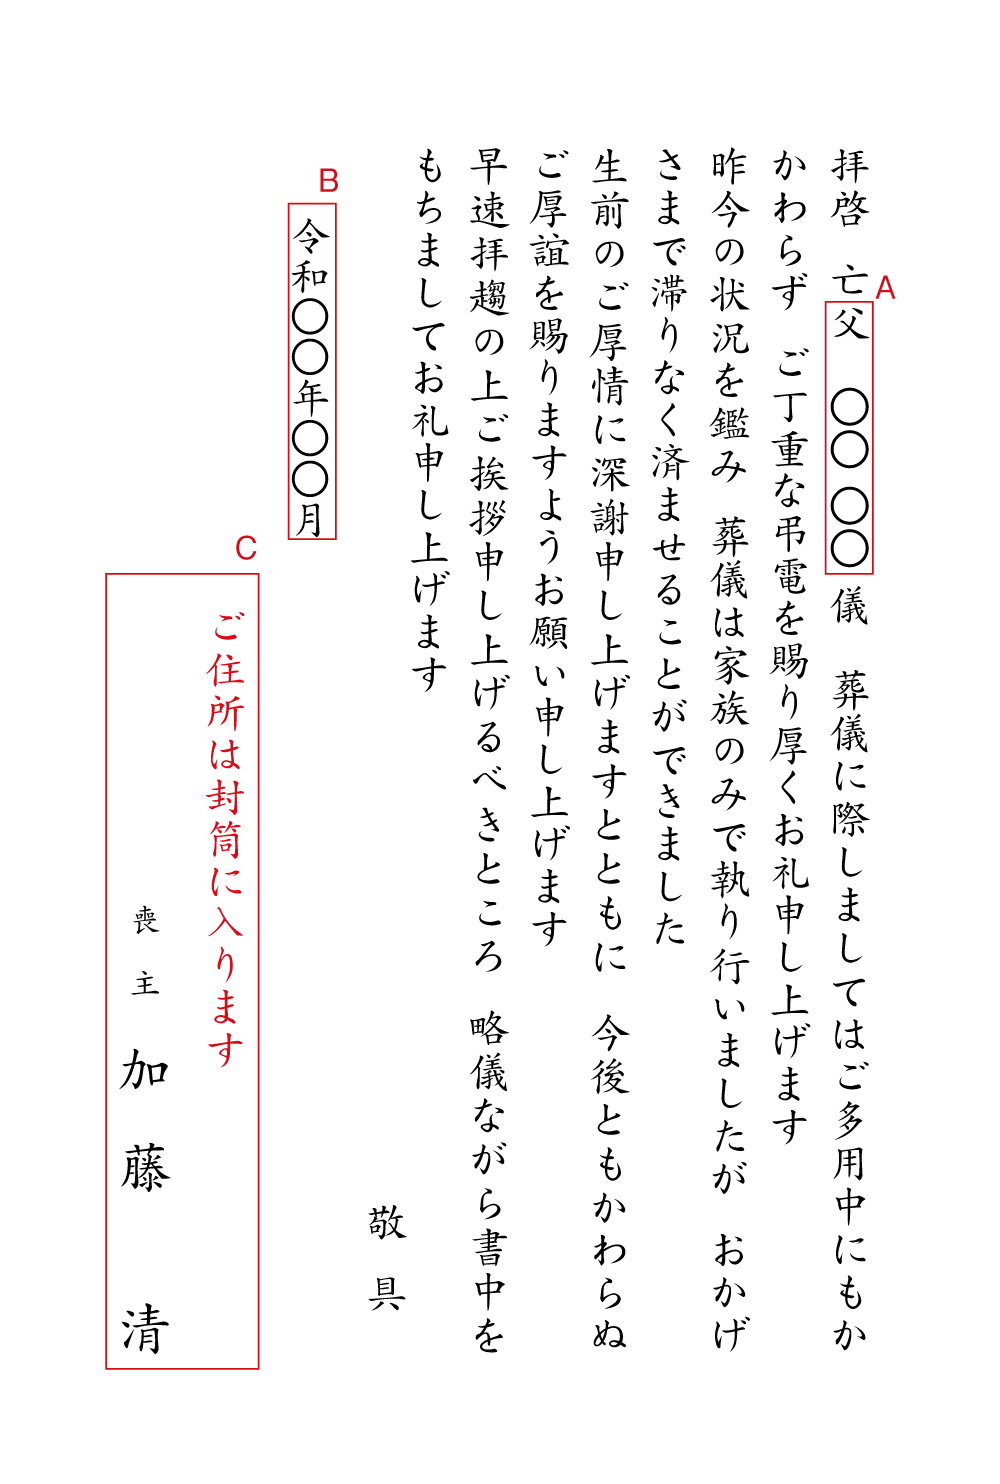 A
拝啓　亡父　〇〇 〇〇 儀　葬儀に際しましてはご多用中にもか
かわらず　ご丁重な弔電を賜り厚くお礼申し上げます
昨今の状況を鑑み　葬儀は家族のみで執り行いましたが　おかげ
さまで滞りなく済ませることができました
生前のご厚情に深謝申し上げますとともに　今後ともかわらぬ
ご厚誼を賜りますようお願い申し上げます
早速拝趨の上ご挨拶申し上げるべきところ　略儀ながら書中を
もちましてお礼申し上げます
敬具
B
令和〇〇年〇〇月
C
ご住所は封筒に入ります
喪主　加藤　清